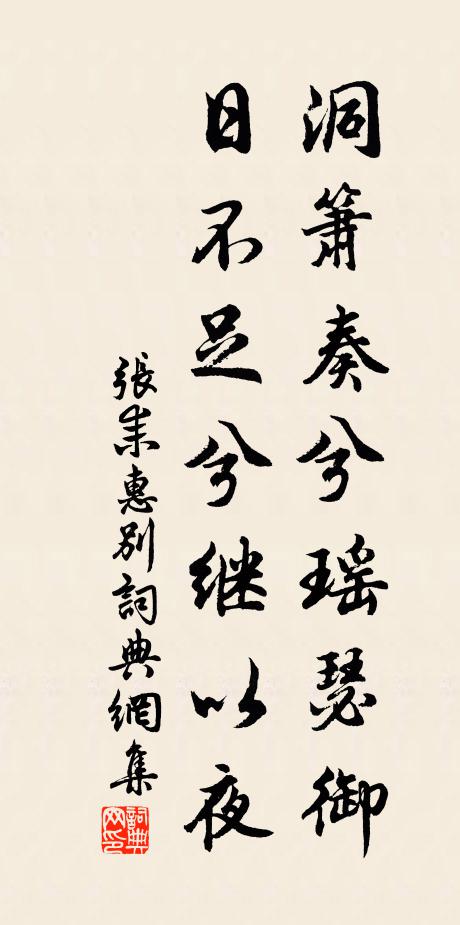 洞箫奏兮瑶瑟御
日不足兮继以夜
張耒惠别詞典網集
詞典网印